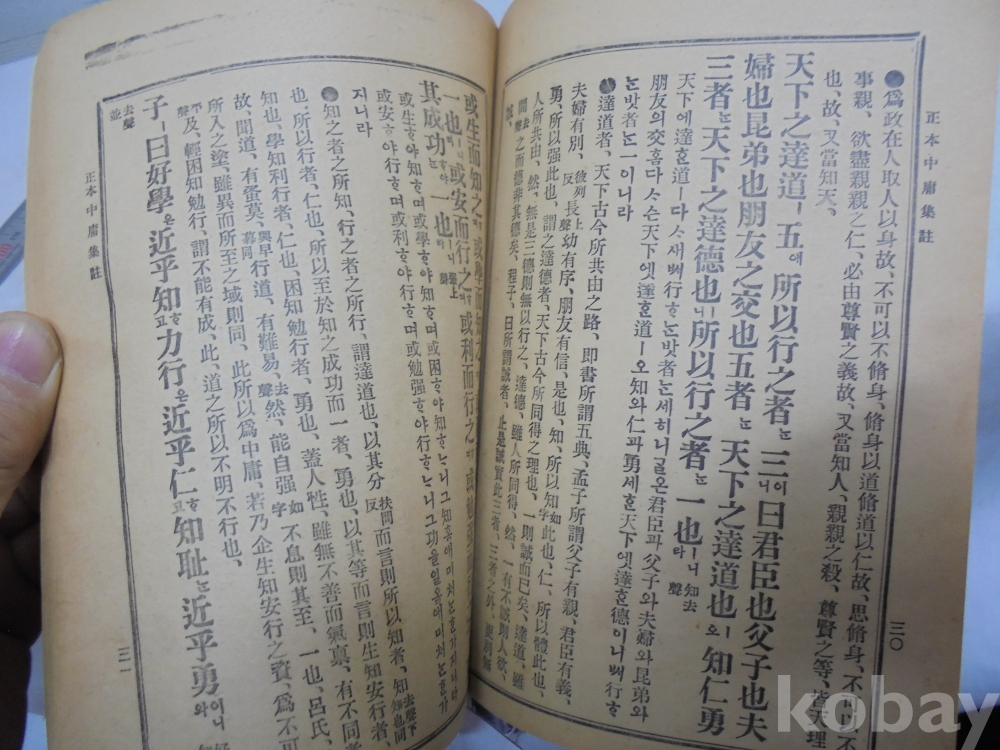 正本中庸集註
三〇
●爲政在人取人以身故、不可以不脩身、脩身以道脩道以仁故、思脩身、不可以不
事親、欲盡親親之仁、必由尊賢之義故、又當知人、親親之殺、尊賢之等、皆天理
也、故、又當知天、
天下之達道ㅣ五에 所以行之者ᄂᆞᆫ 三이니 曰君臣也父子也夫
婦也昆弟也朋友之交也五者ᄂᆞᆫ 天下之達道也ㅣ오 知仁勇
三者ᄂᆞᆫ天下之達德也ㅣ니 所以行之者ᄂᆞᆫ 一也ㅣ니라 知去聲
天下에達ᄒᆞᆫ道ㅣ다ᄉᆞᆺ새ᄡᅥ行ᄒᆞᄂᆞᆫ밧者ᄂᆞᆫ세히니ᄀᆞᆯ온君臣과父子와夫婦와昆弟와
朋友의交홈다ᄉᆞᆺ슨天下엣達ᄒᆞᆫ道ㅣ오知와仁과勇세흔天下엣達ᄒᆞᆫ德이니ᄡᅥ行ᄒᆞ
ᄂᆞᆫ밧者ᄂᆞᆫ一이니라
●達道者、天下古今所共由之路、即書所謂五典、孟子所謂父子有親、君臣有義、
夫婦有別、彼列反長上聲幼有序、朋友有信、是也、知、所以知如字此也、仁、所以體此也、
勇、所以强此也、謂之達德者、天下古今所同得之理也、一則誠而已矣、達道、雖
人所共由、然、無是三德則無以行之、達德、雖人所同得、然、一有不誠則人欲、
間去聲之而德非其德矣、程子、曰所謂誠者、止是誠實此三者、三者之外、更別無
誠、
或生而知之ᄒᆞ며 或學而知之ᄒᆞ며
一也ㅣ니 或安而行之ᄒᆞ며 或利而行之ᄒᆞ며 或
其成功ᄒᆞ야ᄂᆞᆫ 一也ㅣ니라 强上聲
或生ᄒᆞ야知ᄒᆞ며或學ᄒᆞ야知ᄒᆞ며或困ᄒᆞ야知ᄒᆞᄂᆞ니그知홈애미처ᄂᆞᆫᄒᆞᆫ가지니라
或安ᄒᆞ야行ᄒᆞ며或利ᄒᆞ야行ᄒᆞ며或勉强ᄒᆞ야行ᄒᆞᄂᆞ니그功을일옴애미처ᄂᆞᆫᄒᆞᆫ가
지니라
●知之者之所知、行之者之所行、謂達道也、以其分扶問反而言則所以知者、知去聲下知也同
也、所以行者、仁也、所以至於知之成功而一者、勇也、以其等而言則生知安行者、
知也、學知利行者、仁也、困知勉行者、勇也、蓋人性、雖無不善而氣禀、有不同者
故、聞道、有蚤莫、與早暮同行道、有難易、去聲然、能自强如字不息則其至、一也、呂氏、
所入之塗、雖異而所至之域則同、此所以爲中庸、若乃企生知安行之資、爲不可
平聲及、輕困知勉行、謂不能有成、此、道之所以不明不行也、
子ㅣ曰好學은近乎知ᄒᆞ고力行은近乎仁ᄒᆞ고知耻ᄂᆞᆫ近乎勇이니라
去聲並
正本中庸集註
三一